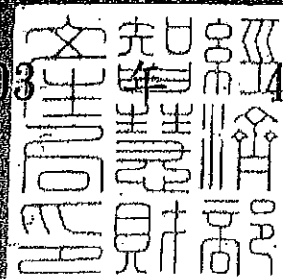 經濟部
智慧財
產局印
3 年 4